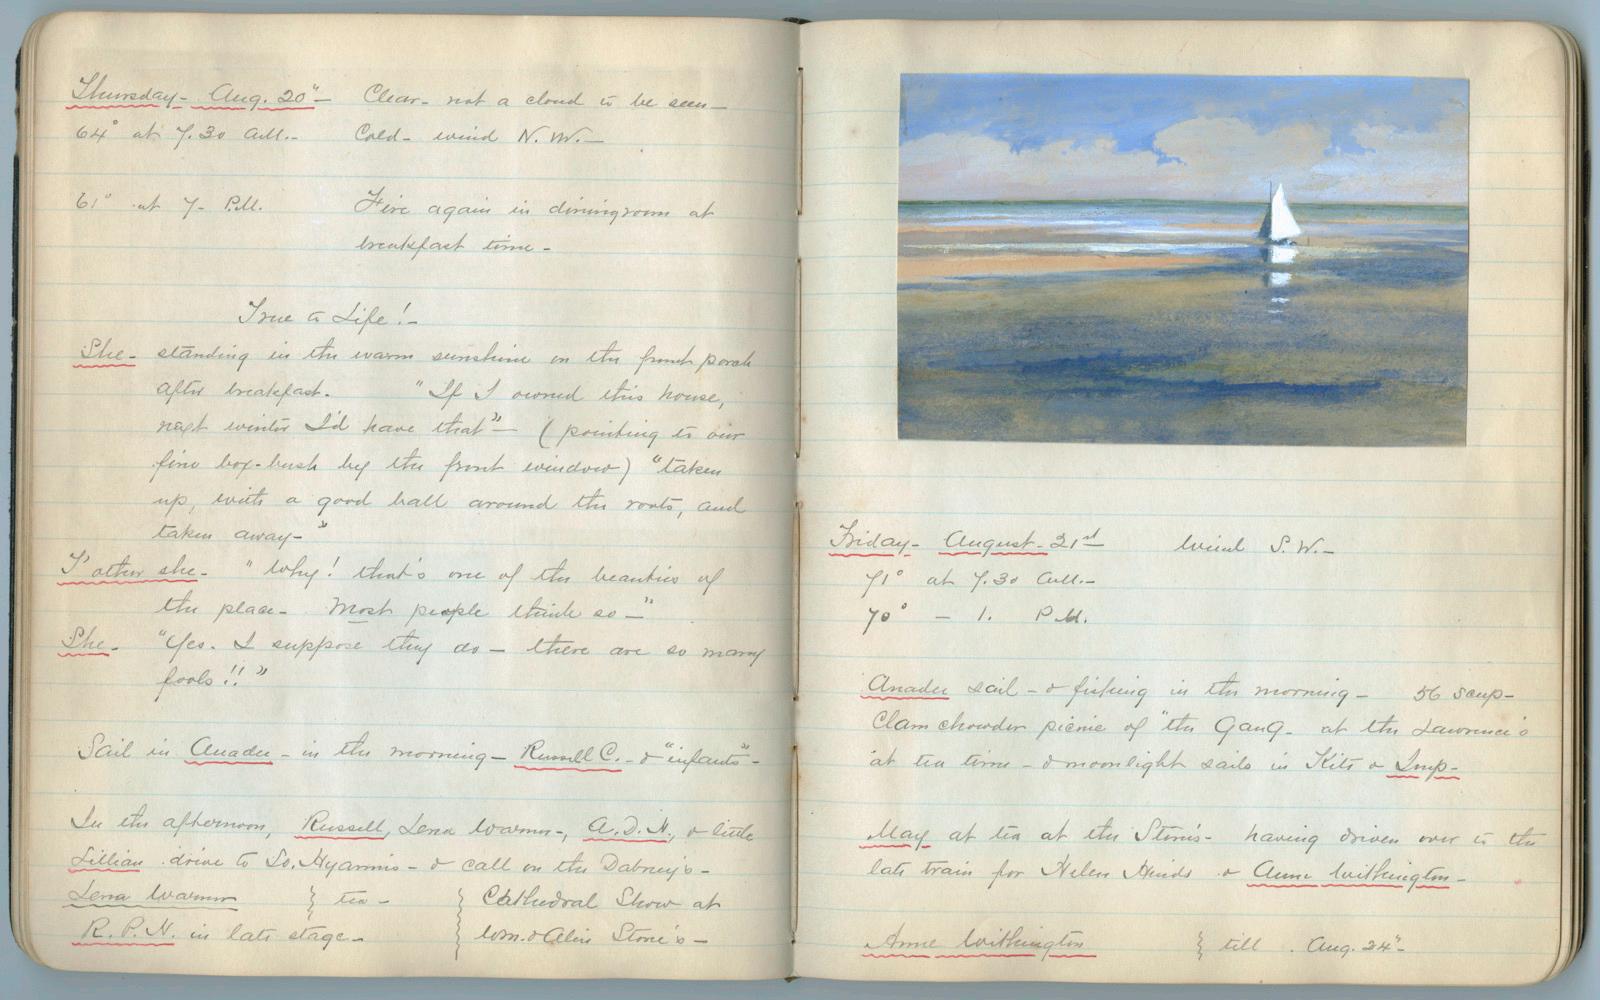 Thursday- Aug. 20"- Clear- not a cloud to be seen-
64° at 7.30 A.M.- Cold- wind N.W.-
61° at 7- P.M. Fire again in diningroom at
breakfast time-
True to Life!-
She- standing in the warm sunshine on the front porch
after breakfast. "If I owned this house,
next winter I'd have that"- (pointing to our
fine box-bush by the front window) "taken
up, with a good ball around the roots, and
taken away-"
T'other she- "Why! that's one of the beauties of
the place- Most people think so-"
She- "Yes. I suppose they do- there are so many
fools!!"
Sail in Anadee- in the morning- Russell C.- & "infants"-
In the afternoon, Russell, Lena Warner-, A.D.N., & little
Lillian drive to So. Hyannis- & call on the Dabney's-
Lena Warner } tea- { Cathedral Show at
R.P.N. in late stage- Wm. & Alice Stone's-
Friday- August- 21st Wind S.W.-
71° at 7.30 A.M.-
70° - 1. P.M.
Anadee sail- & fishing in the morning- 56 scup-
Clam chowder picnic of "the Gang- at the Lawrence's
at tea time- & moonlight sails in Kits & Imp-
May at tea at the Stone's- having driven over to the
late train for Helen Hinds & Anne Withington-
Anne Withington } till Aug. 24"-